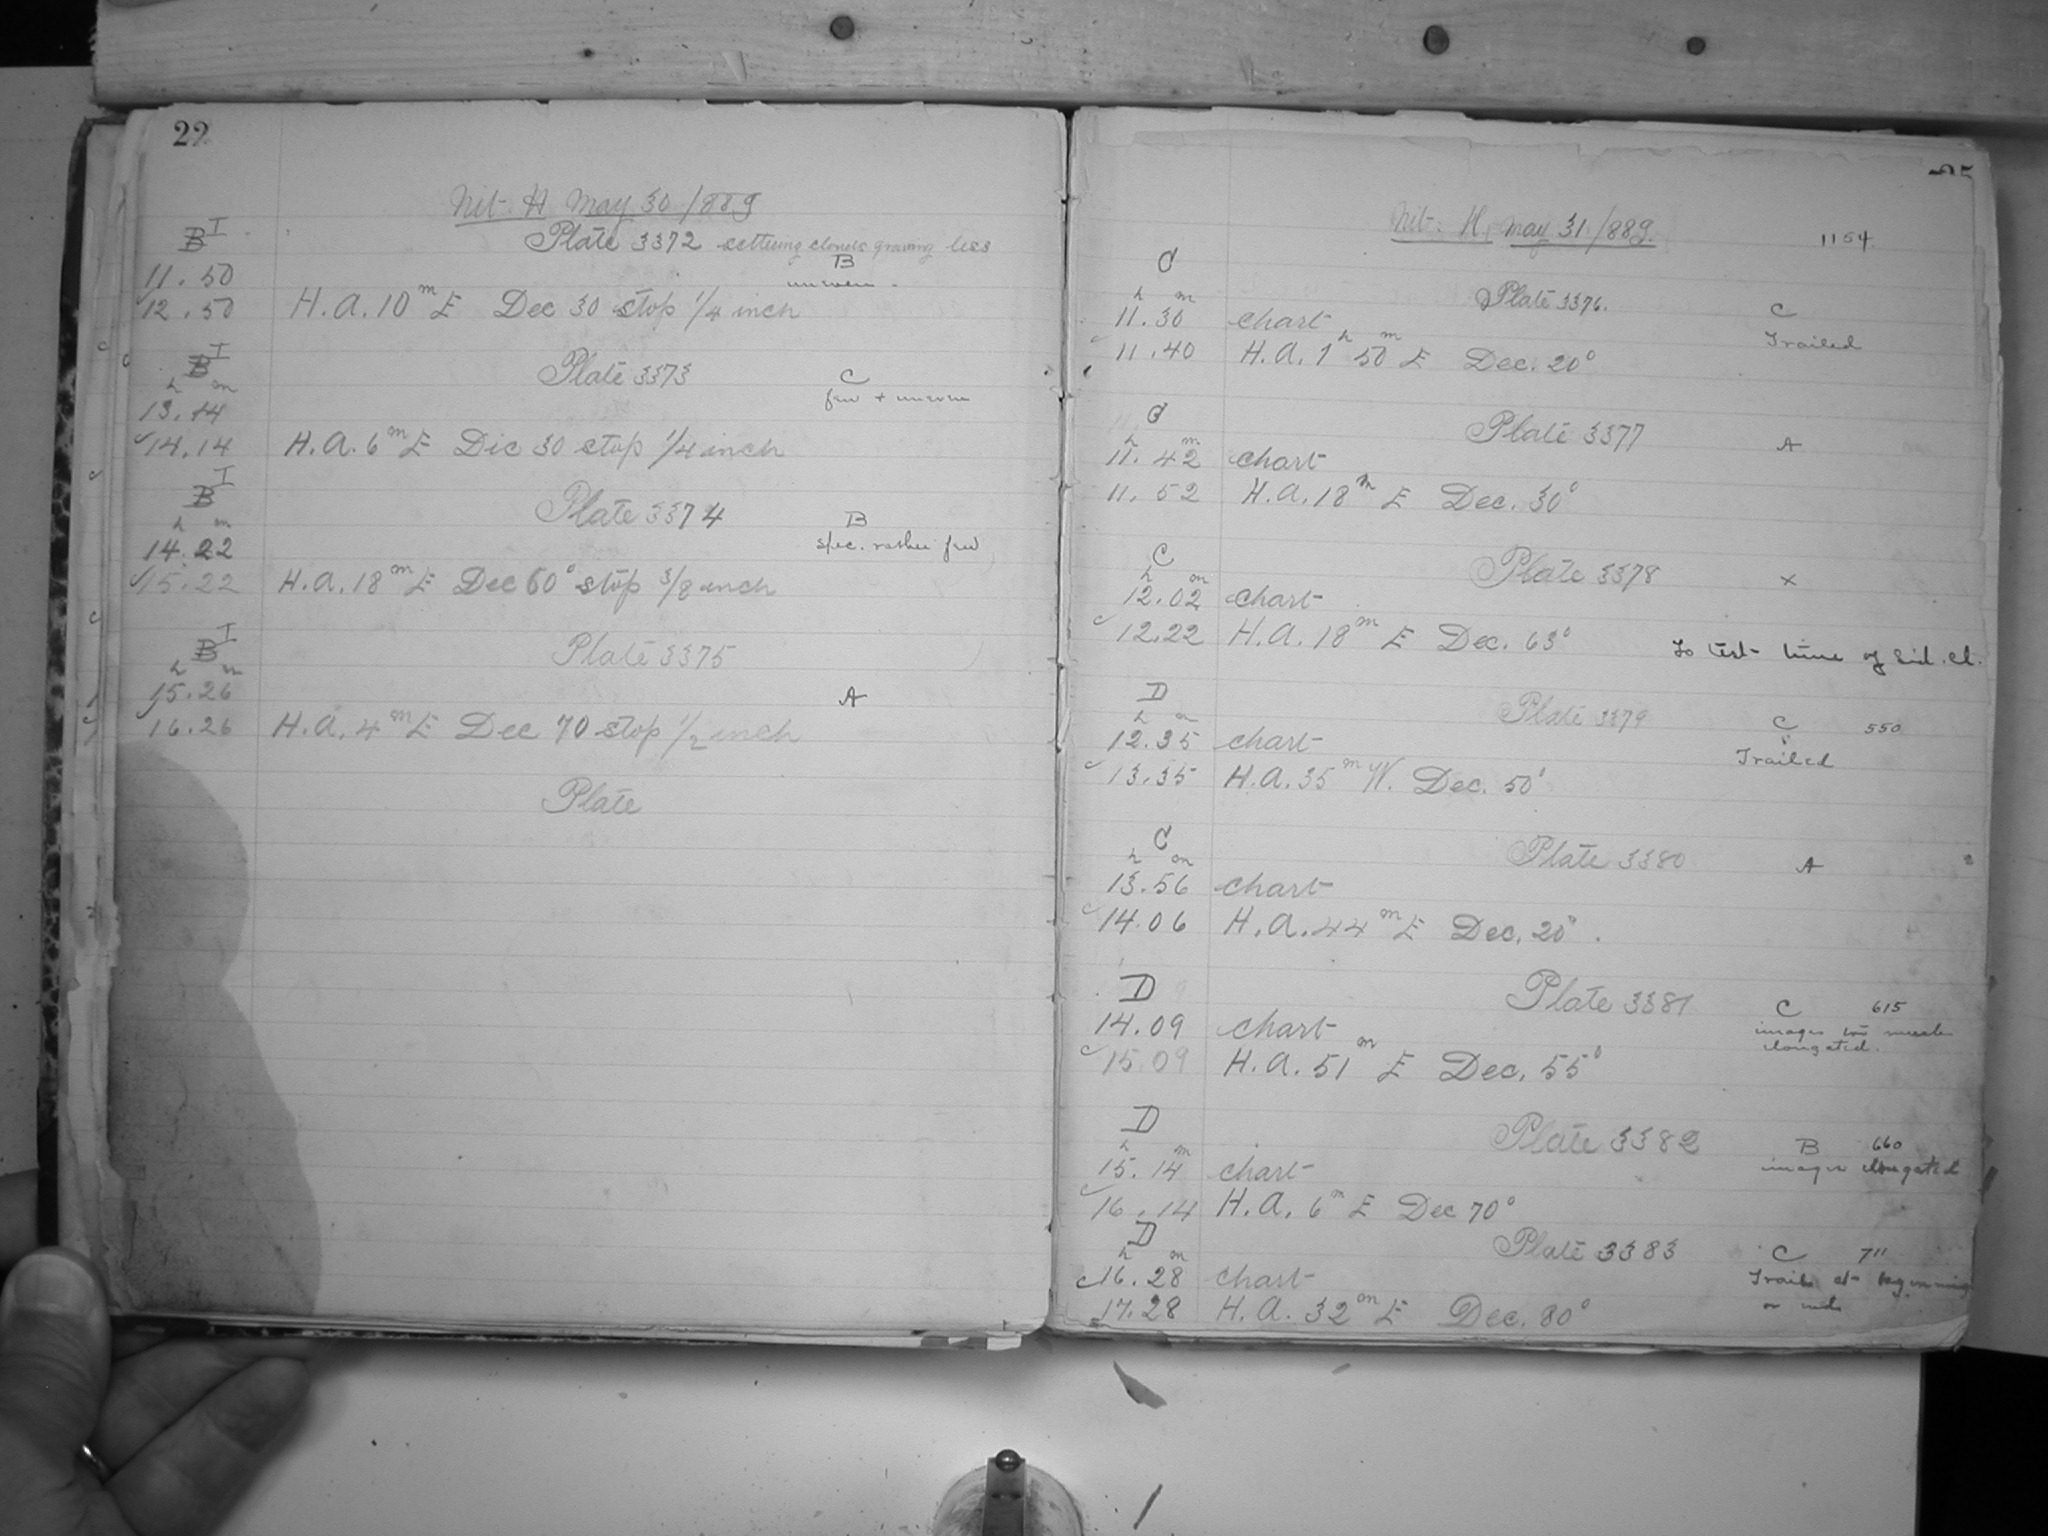 22
Nit. H May 30/889
B I
Plate 3372 settling clouds graving less
B
11.50
uneven.
12.50 H.A. 10 m E Dec 30 stop 1/4 inch
B I
Plate 3373
C
h m
few + uneven
13.14
14.14 H.A. 6 m E Dic 30 stop 1/4 inch
B I
Plate 3374
B
h m
spec. rather few
14.22
15.22 H.A. 18 m E Dec 60° stop 3/8 inch
B I
Plate 3375
h m
15.26
A
16.26 H.A. 4 m E Dec 70 stop 1/2 inch
Plate
Nit: H, May 31./889.
1154
C
Plate 3376.
h m
C
11.30 chart
Trailed
11.40 H.A. 1 h 50 m E Dec. 20°
C
Plate 3377
A
h m
11.42 chart
11.52 H.A. 18 m E Dec. 30°
C
Plate 3378
x
h m
12.02 chart
12.22 H.A. 18 m E Dec. 63°
To test time of Sid. Cl.
D
Plate 3379
C 550
h m
12.35 chart
Trailed
13.35 H.A. 35 m W. Dec. 50°
C
Plate 3380
A
h m
13.56 chart
14.06 H.A. 44 m E Dec. 20°.
D
Plate 3381
C 615
14.09 chart
images too much
elongated.
15.09 H.A. 51 m E Dec. 55°
D
Plate 3382
B 660
h m
images elongated
15.14 chart
16.14 H.A. 6 m E Dec 70°
D
Plate 3383
C 711
h m
16.28 chart
Trails at beginning
or end
17.28 H.A. 32 m E Dec. 80°